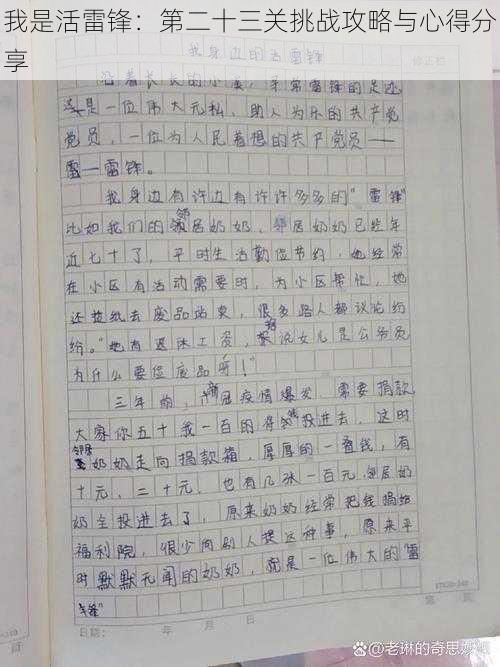 我是活雷锋：第二十三关挑战攻略与心得分
享
我身边的活雷锋
沿着长长的小溪，寻常雷锋的足迹
这是一位伟大无私、助人为乐的共产党
党员，一位为人民着想的共产党员——
雷—雷锋。
我身边有许边有许许多多的"雷锋"
比如我们的邻居奶奶，邻居奶奶已经年
近七十了，平时生活勤俭节约，她经常
在小区有活动需要时，为小区帮忙，她
还捡纸去废品站卖，很多路人都议论纷
纷。"她有退休工资，听说女儿是公务员
为什么要捡废品呀！"
三年前，新冠疫情爆发，需要捐款
大家你五十我一百的得投进去，这时
邻居奶奶走向捐款箱，厚厚的一叠钱，有
十元、二十元、也有几张一百元，邻居奶
奶全投进去了，原来奶奶经常把钱捐给
福利院，很少向别人提这种事，原来平
时默默无闻的奶奶，就是一位伟大的"雷
锋"
日期： 年 月 日
第 页
@老琳的奇思妙想